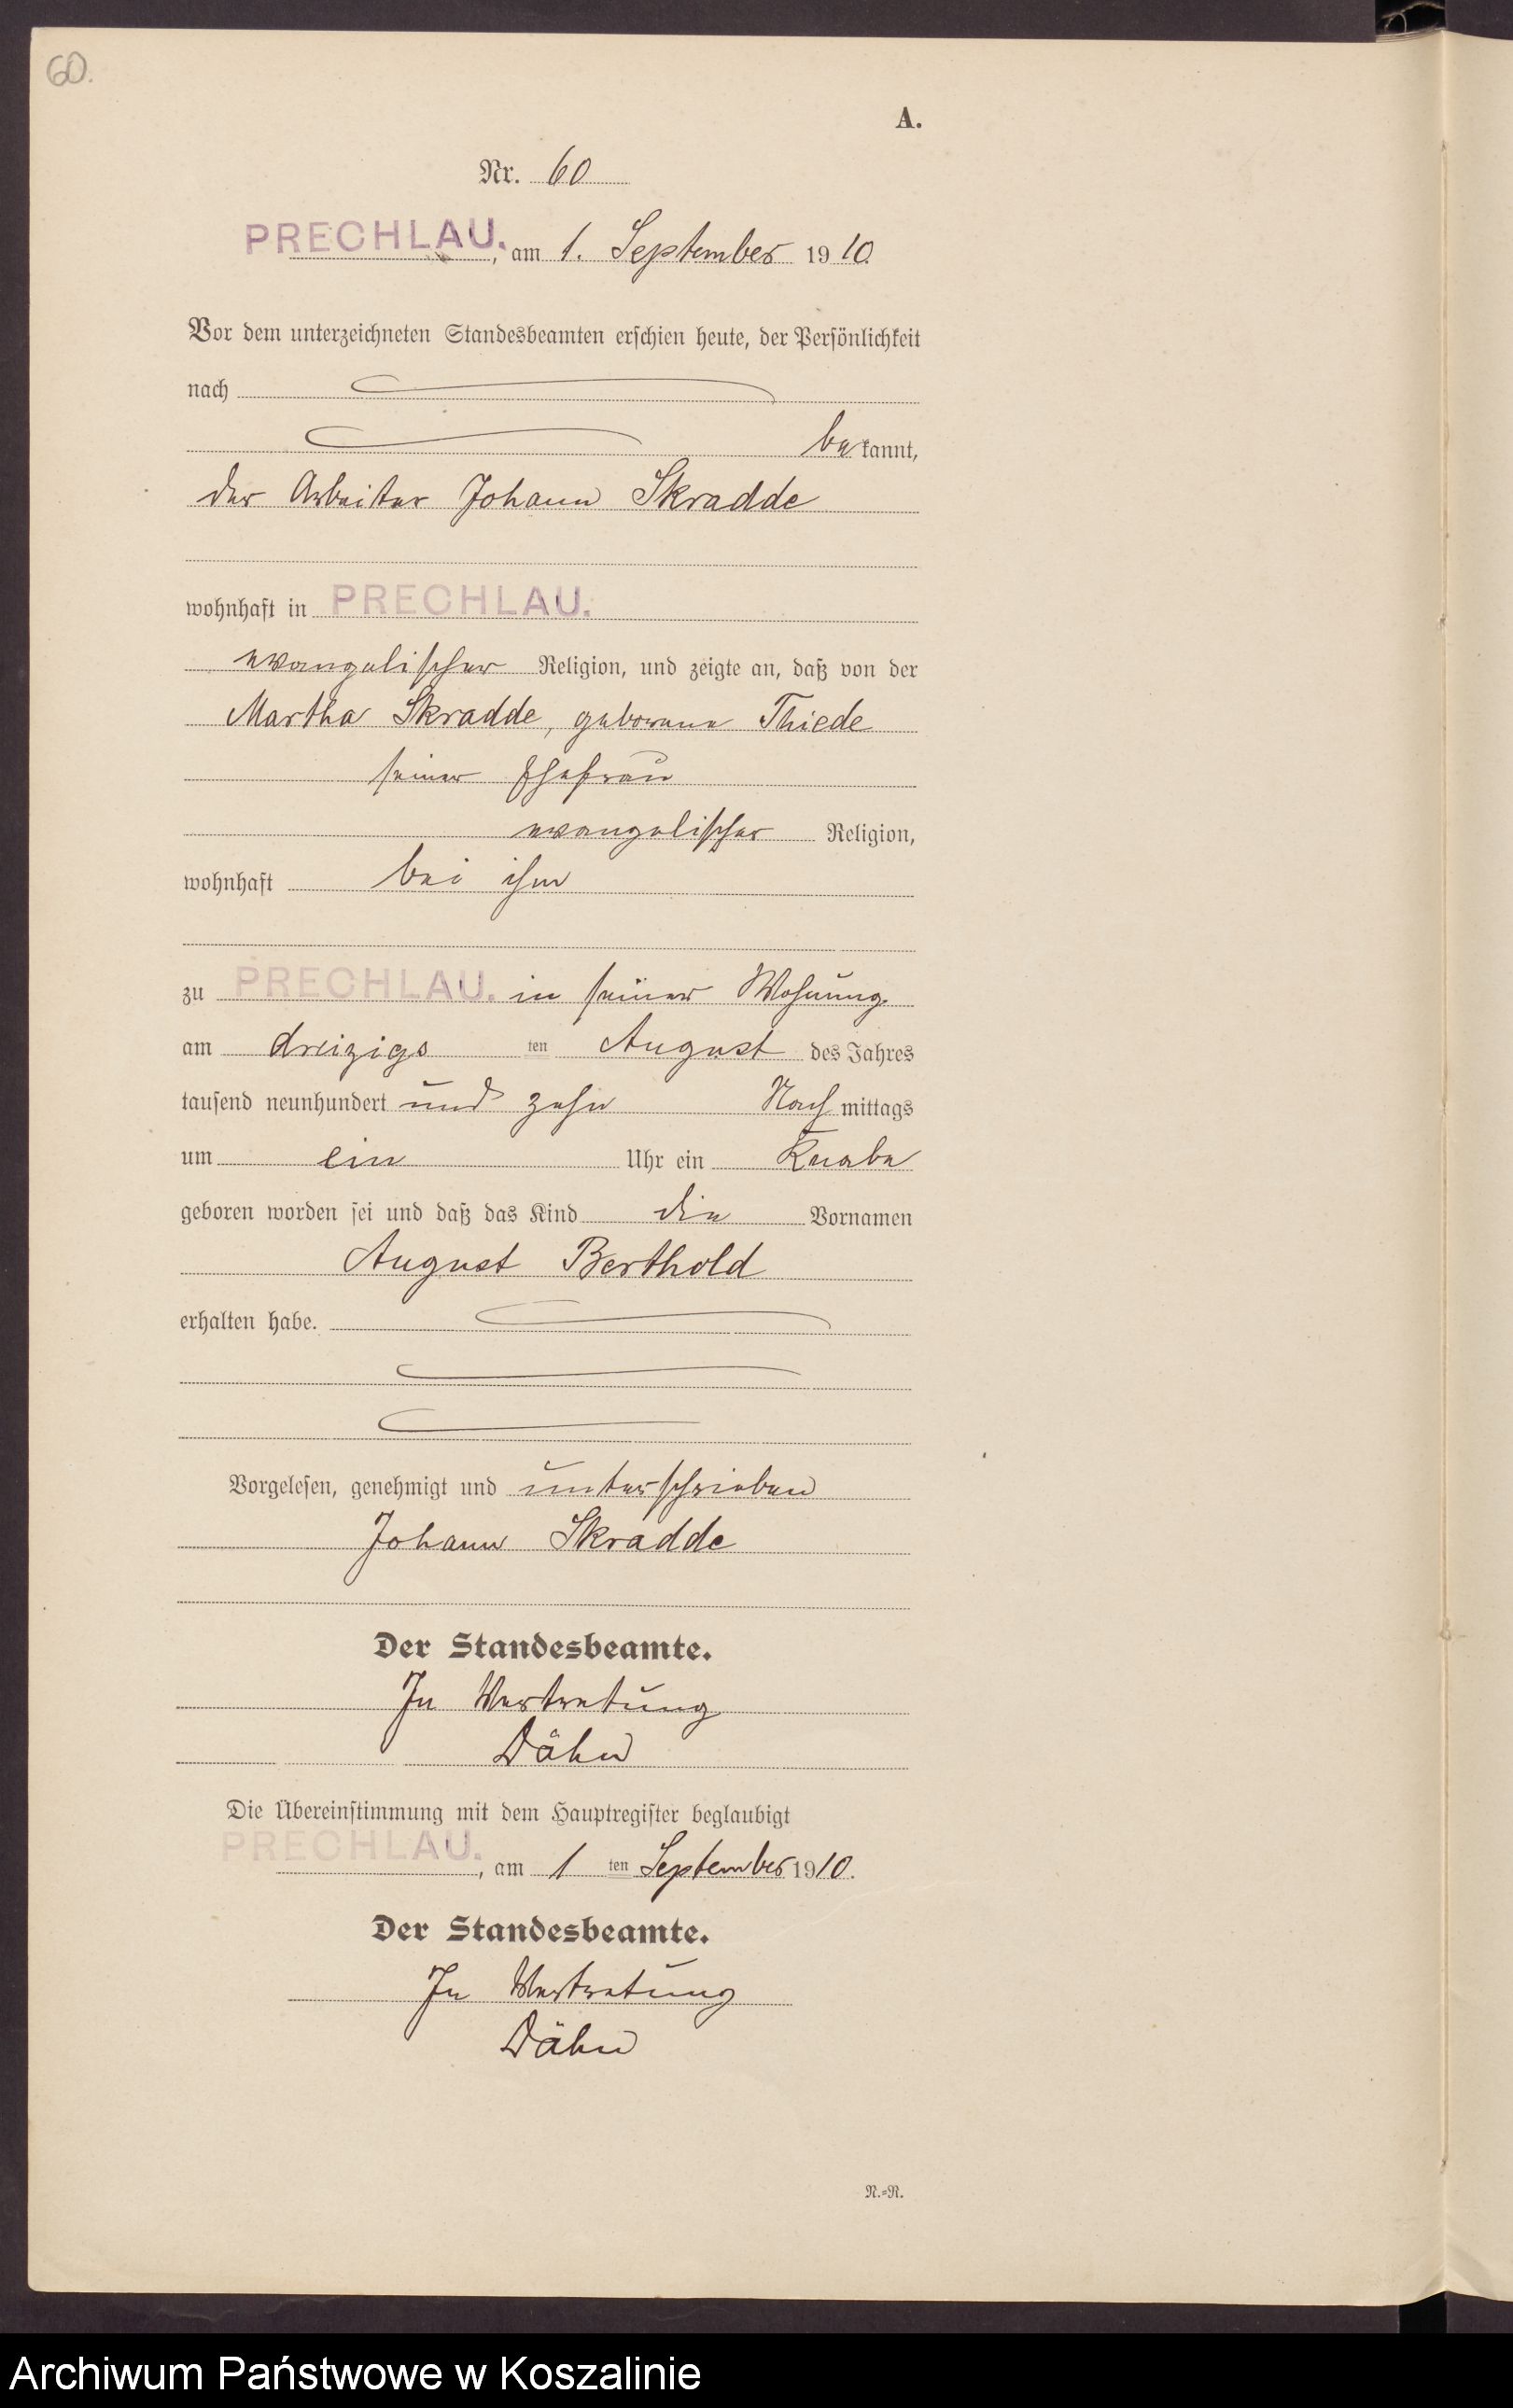 60.
A.
Nr. 60
PRECHLAU., am 1. September 1910.
Vor dem unterzeichneten Standesbeamten erschien heute, der Persönlichkeit
nach
bekannt,
der Arbeiter Johann Skradde
wohnhaft in PRECHLAU.
evangelischer Religion, und zeigte an, daß von der
Martha Skradde, geborene Thiede
seiner Ehefrau
evangelischer Religion,
wohnhaft bei ihm
zu PRECHLAU. in seiner Wohnung
am dreizigsten August des Jahres
tausend neunhundert und zehn Nachmittags
um ein Uhr ein Knabe
geboren worden sei und daß das Kind die Vornamen
August Berthold
erhalten habe.
Vorgelesen, genehmigt und unterschrieben
Johann Skradde
Der Standesbeamte.
In Vertretung
Dähn
Die Übereinstimmung mit dem Hauptregister beglaubigt
PRECHLAU., am 1ten September 1910.
Der Standesbeamte.
In Vertretung
Dähn
N.=R.
Archiwum Państwowe w Koszalinie